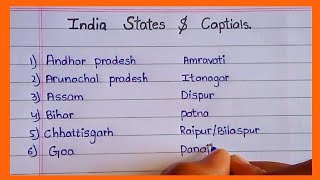 India States $ Captials.
1) Andhar pradesh Amravati
2) Arunachal pradesh Itanagar
3) Assam Dispur
4) Bihar patna
5) Chhattisgarh Raipur/Bilaspur
6) Goa panaj